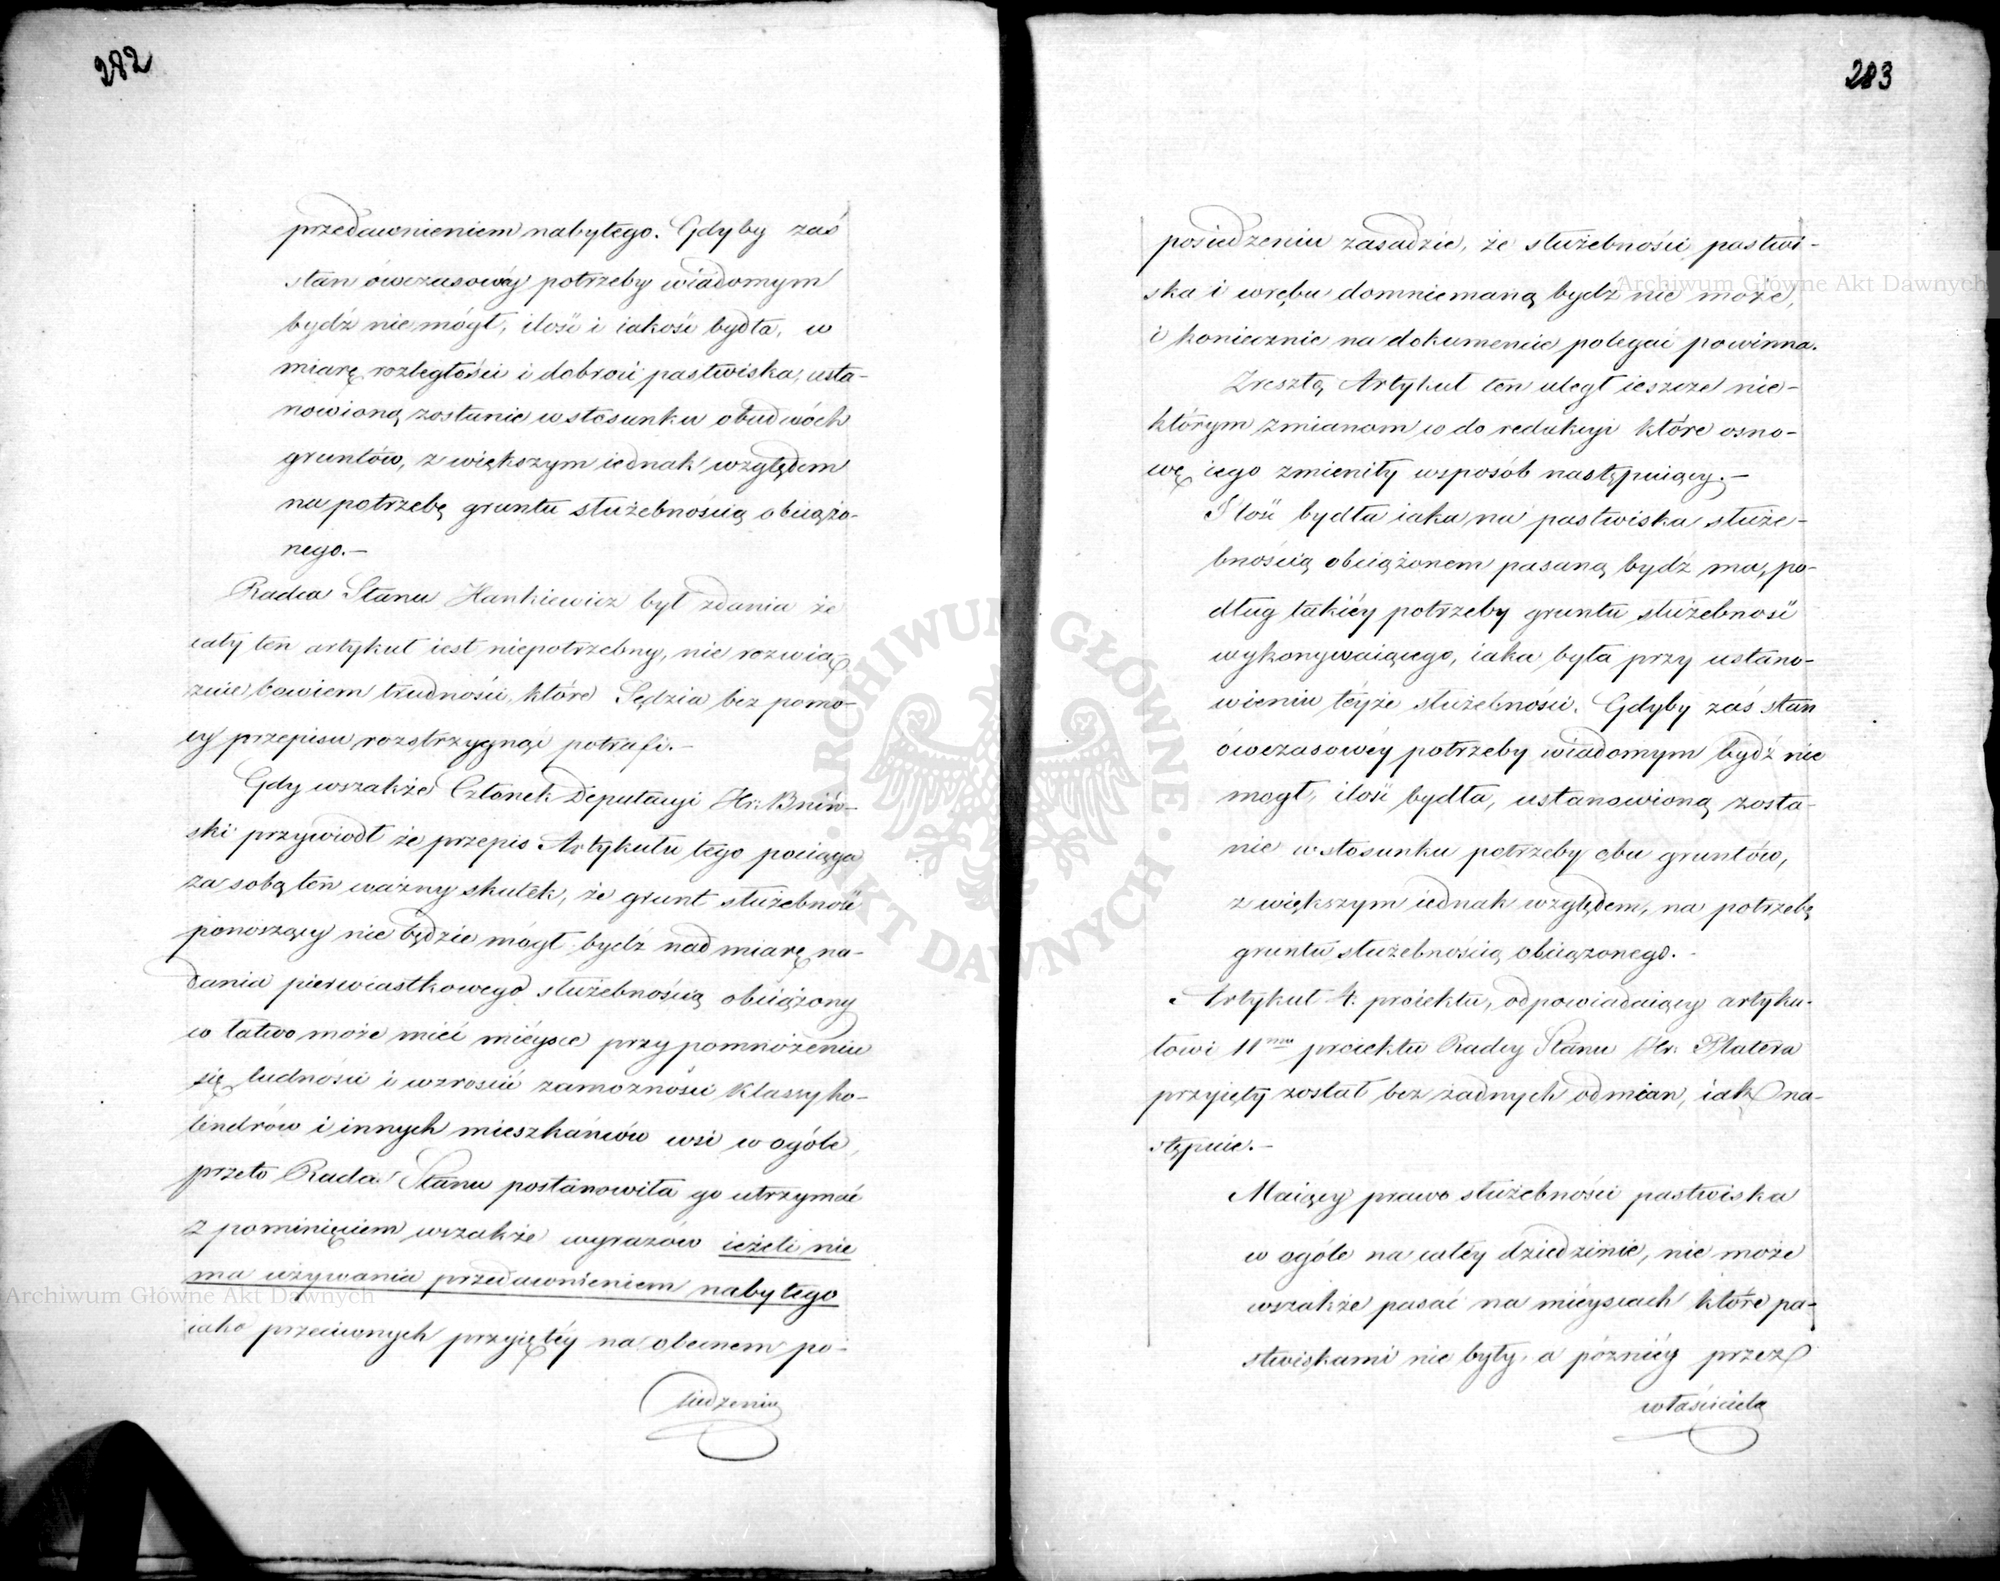 282
przedawnieniem nabytego. Gdyby zaś
stan ówczasowéy potrzeby wiadomym
bydź nie mógł, ilość i iakość bydła, w
miarę rozległości i dobroci pastwiska, usta-
nowioną zostanie w stosunku obudwóch
gruntów, z większym iednak względem
na potrzebę gruntu służebnością obciążo-
nego.-
Radca Stanu Hankiewicz był zdania że
cały ten artykuł iest niepotrzebny, nie rozwią-
zuie bowiem trudności, które Sędzia bez pomo-
cy przepisu rozstrzygnąć potrafi.-
Gdy wszakże Członek Deputacyi Hr: Bniń-
ski przywiodł że przepis Artykułu tego pociąga
za sobą ten ważny skutek, że grunt służebność
ponoszący nie będzie mógł bydź nad miarę na-
dania pierwiastkowego służebnością obciążony
co łatwo może mieć mieysce przy pomnożeniu
się ludności i wzroście zamożności klassy ko-
lendrów i innych mieszkańców wsi w ogóle,
przeto Rada Stanu postanowiła go utrzymać
z pominięciem wszakże wyrazów ieżeli nie
ma używania przedawnieniem nabytego
iako przeciwnych przyiętéy na obecnem po-
siedzeniu
283
posiedzeniu zasadzie, że służebności pastwi-
ska i wrębu domniemaną bydz nie może,
i koniecznie na dokumencie polegać powinna.
Zresztą Artykuł ten uległ ieszcze nie-
którym zmianom co do redakcyi które osno-
wę iego zmieniły wsposób następuiący.-
Ilość bydła iaka na pastwiska służe-
bnością obciążonem pasaną bydź ma, po-
dług takiéy potrzeby gruntu służebność
wykonywaiącego, iaka była przy ustano-
wieniu téyże służebności. Gdyby zaś stan
ówczasowéy potrzeby wiadomym bydź nie
mogł, ilość bydła, ustanowioną zosta-
nie w stosunku potrzeby obu gruntów,
z większym iednak względem, na potrzebę
gruntu służebnością obciążonego.-
Artykuł 4: proiektu, odpowiadaiący artyku-
łowi 11mu proiektu Radcy Stanu Hr: Platera
przyięty został bez żadnych odmian, iak na-
stępuie.-
Maiący prawo służebności pastwiska
w ogóle na całéy dziedzinie, nie może
wszakże pasać na mieyscach które pa-
stwiskami nie były, a późniéy przez
właściciela
ARCHIWUM GŁÓWNE AKT DAWNYCH
Archiwum Główne Akt Dawnych
Archiwum Główne Akt Dawnych